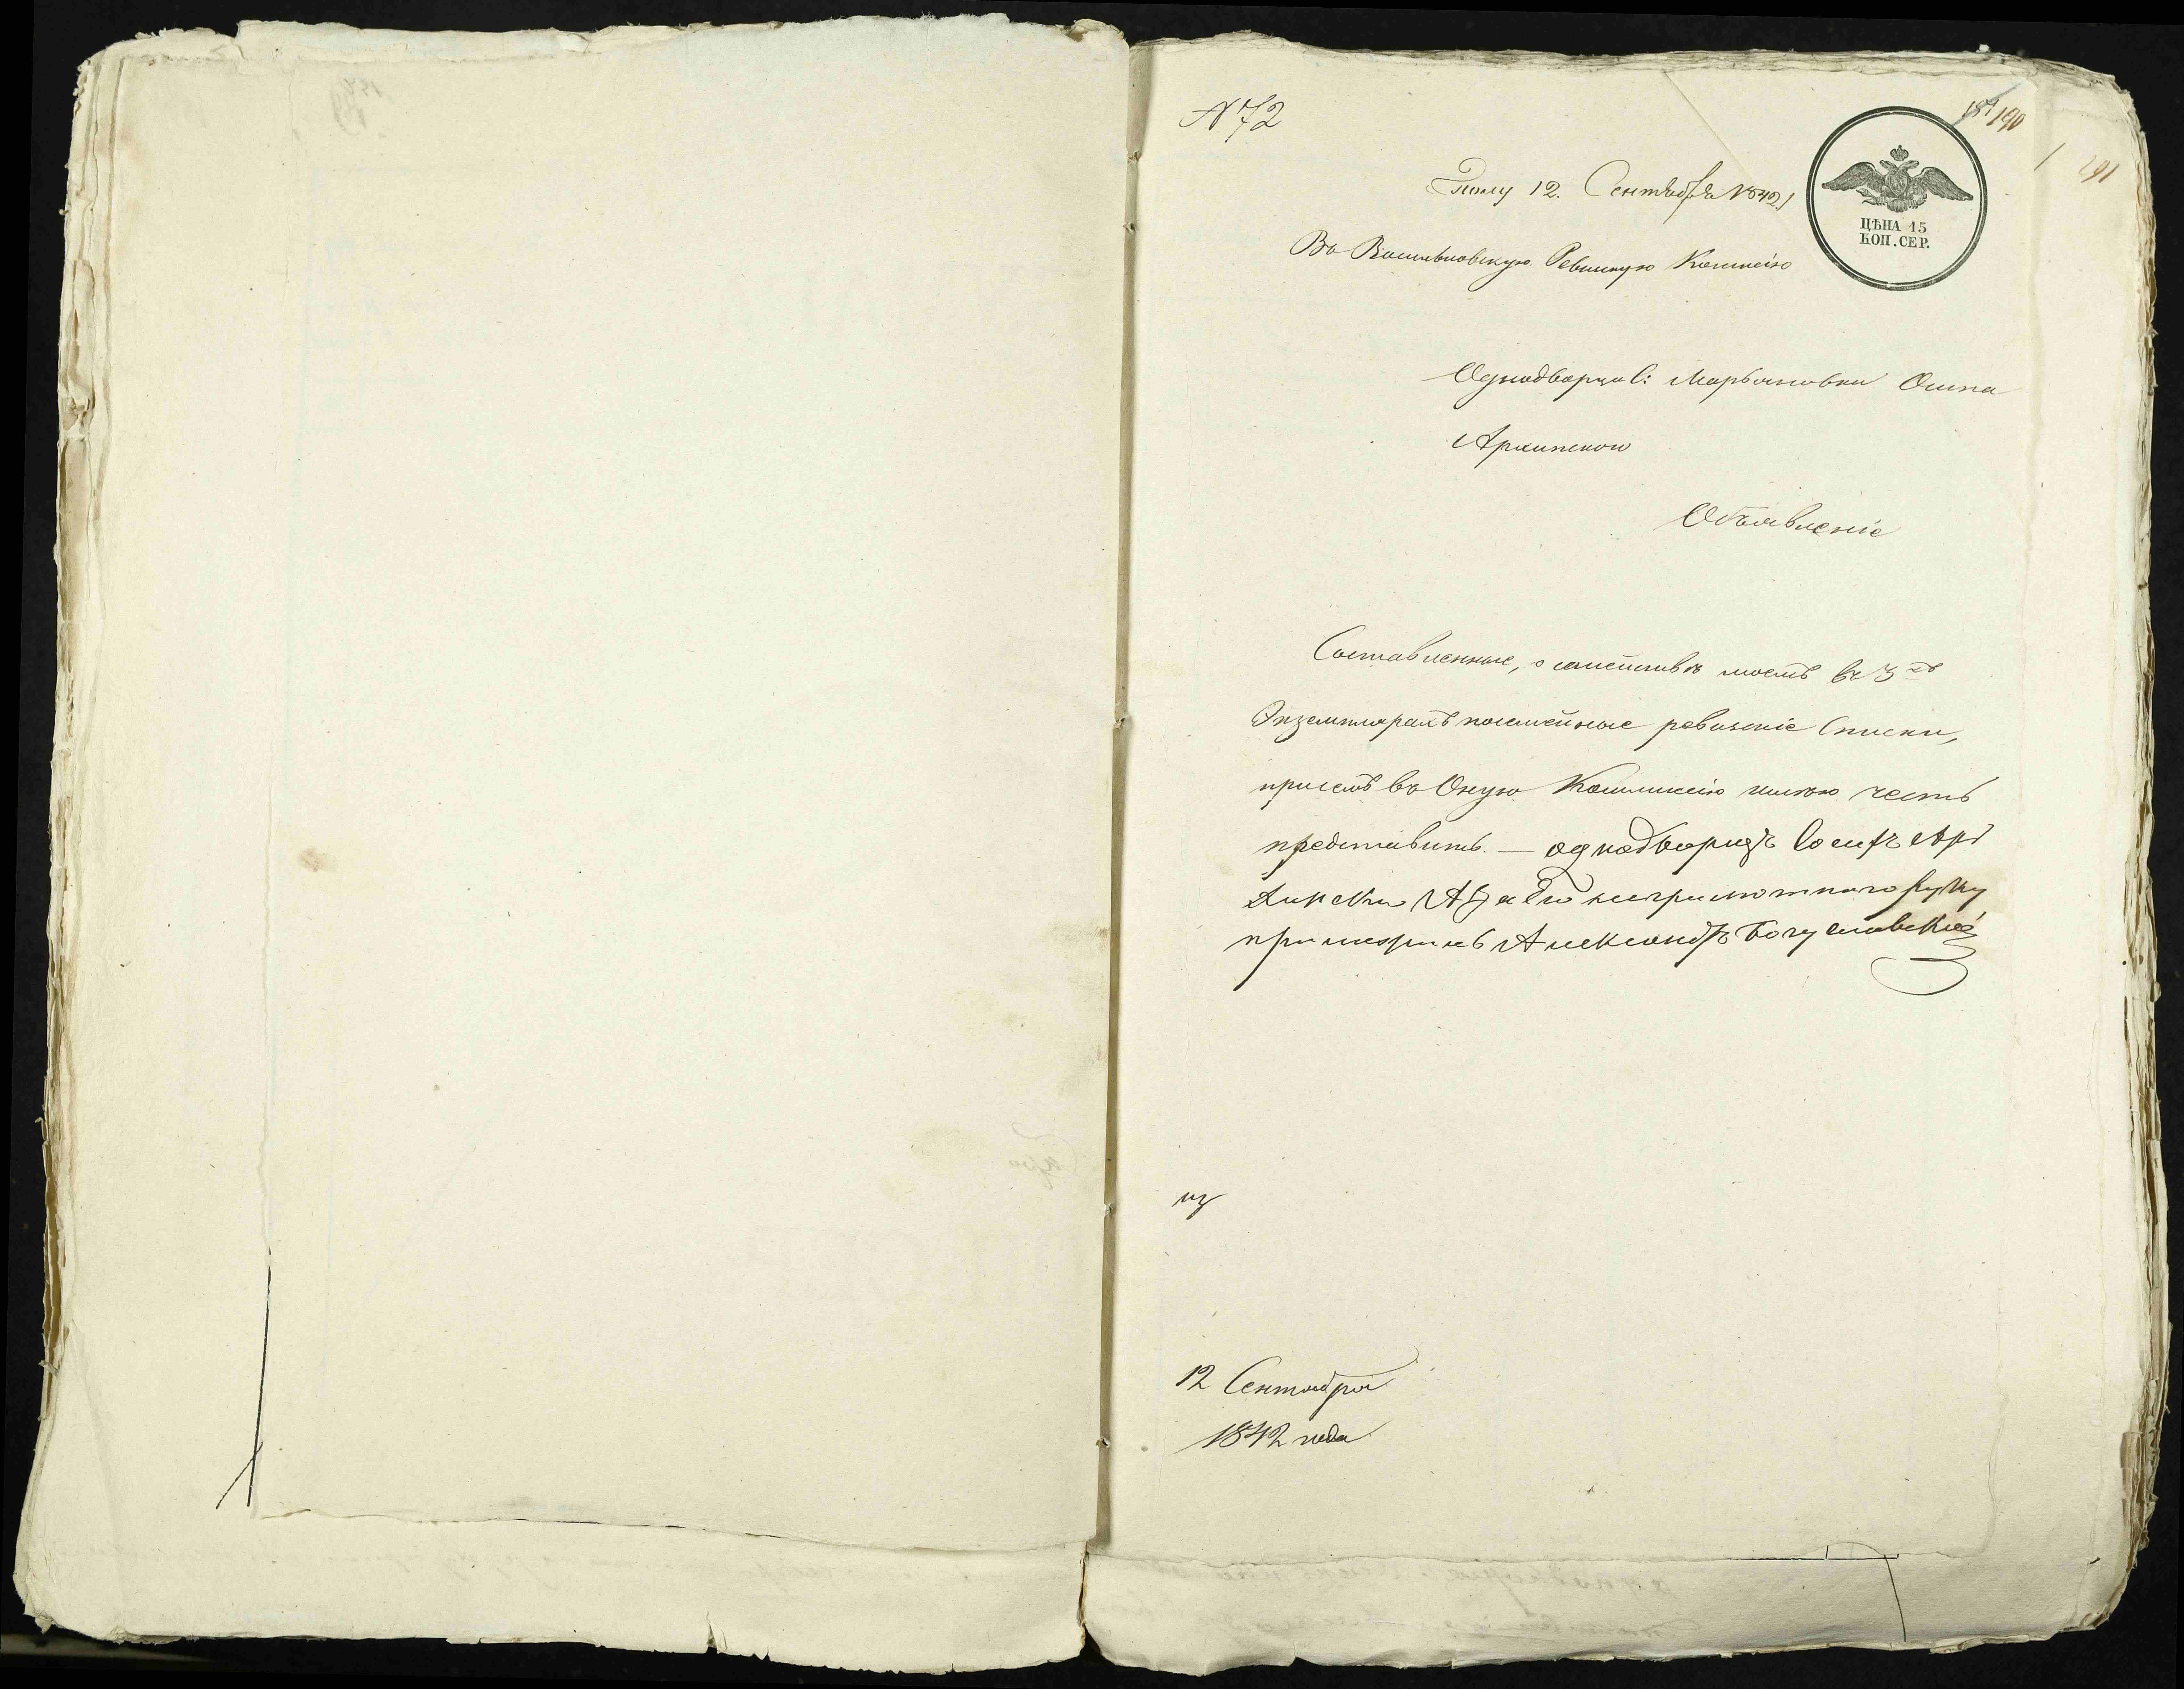 N 72
189 190
191
Полу 12. Сентября 1842
ЦѢНА 15
КОП. СЕР.
Въ Васильковскую Ревизкую Комисію
Однодворца С: Марьяновки Осипа
Объявленіе
Составленные, о семействѣ моемъ въ 3хъ
Экземплярахъ посемейные ревизскіе Списки,
присемъ въ Оную Коммисію имѣю честь
представить. — однодворецъ Іосифъ Ар
а за его неграмотного руку
приложилъ Александръ Богуславскій
12 Сентября
1842 года